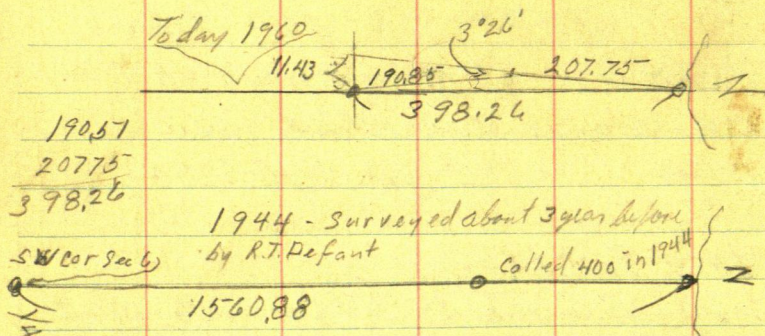 Today 1960
3°26'
11.43
190.85
207.75
398.26
N
190.51
207.75
398.26
1944 - Surveyed about 3 year before
by R.T. Defant
SW cor Sec 6
Called 400 in 1944
N
1560.88